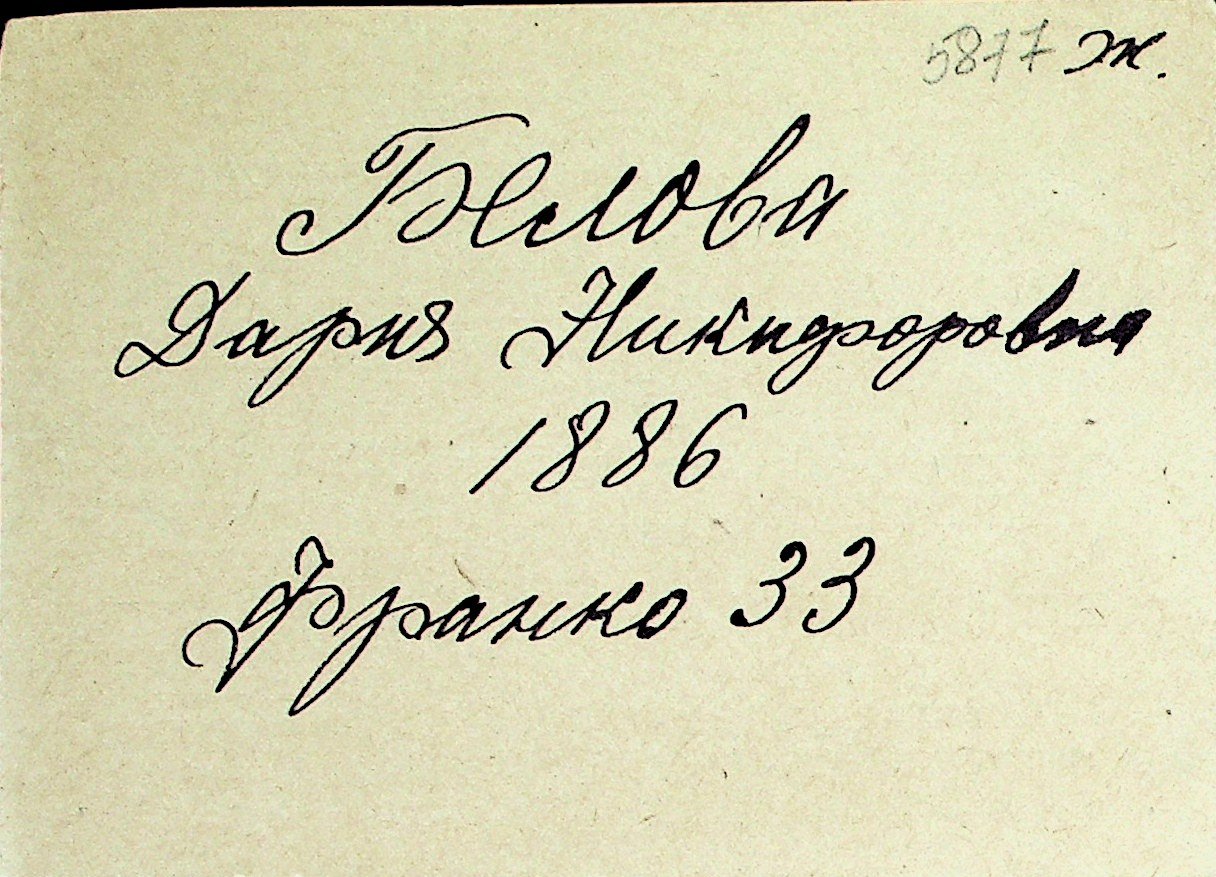 5877 ж.
Белова
Дария Никифоровна
1886
Франко 33